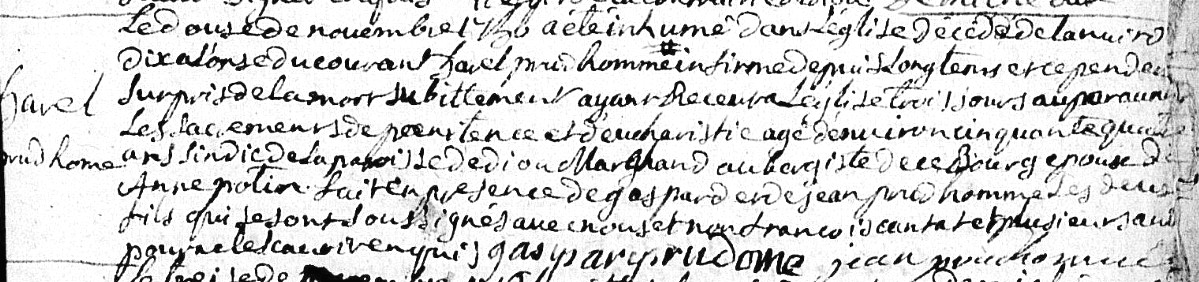 Le douse de novembre 17 a été inhumé dans l'église décédé de la nuit d
dix a l'onse du courant harel prud homme infirme depuis longtems et cependan
harel
surpris de la mort subittement ayant Receu a L'église trois jours auparavant
Les sacements de penitence et d'eucharistie agé d'environ cinquante quatre
prud home
ans sindic de la paroisse de Marchand aubergiste de ce Bourg epoux de
Anne potin fait en presence de gaspard et de jean prud homme ses deux
fils qui se sont soussignés avec nous et non francois cantat et plusieurs aut
pour ne les cavoir enquis gaspar prudome jean prudhomme
Le treise de